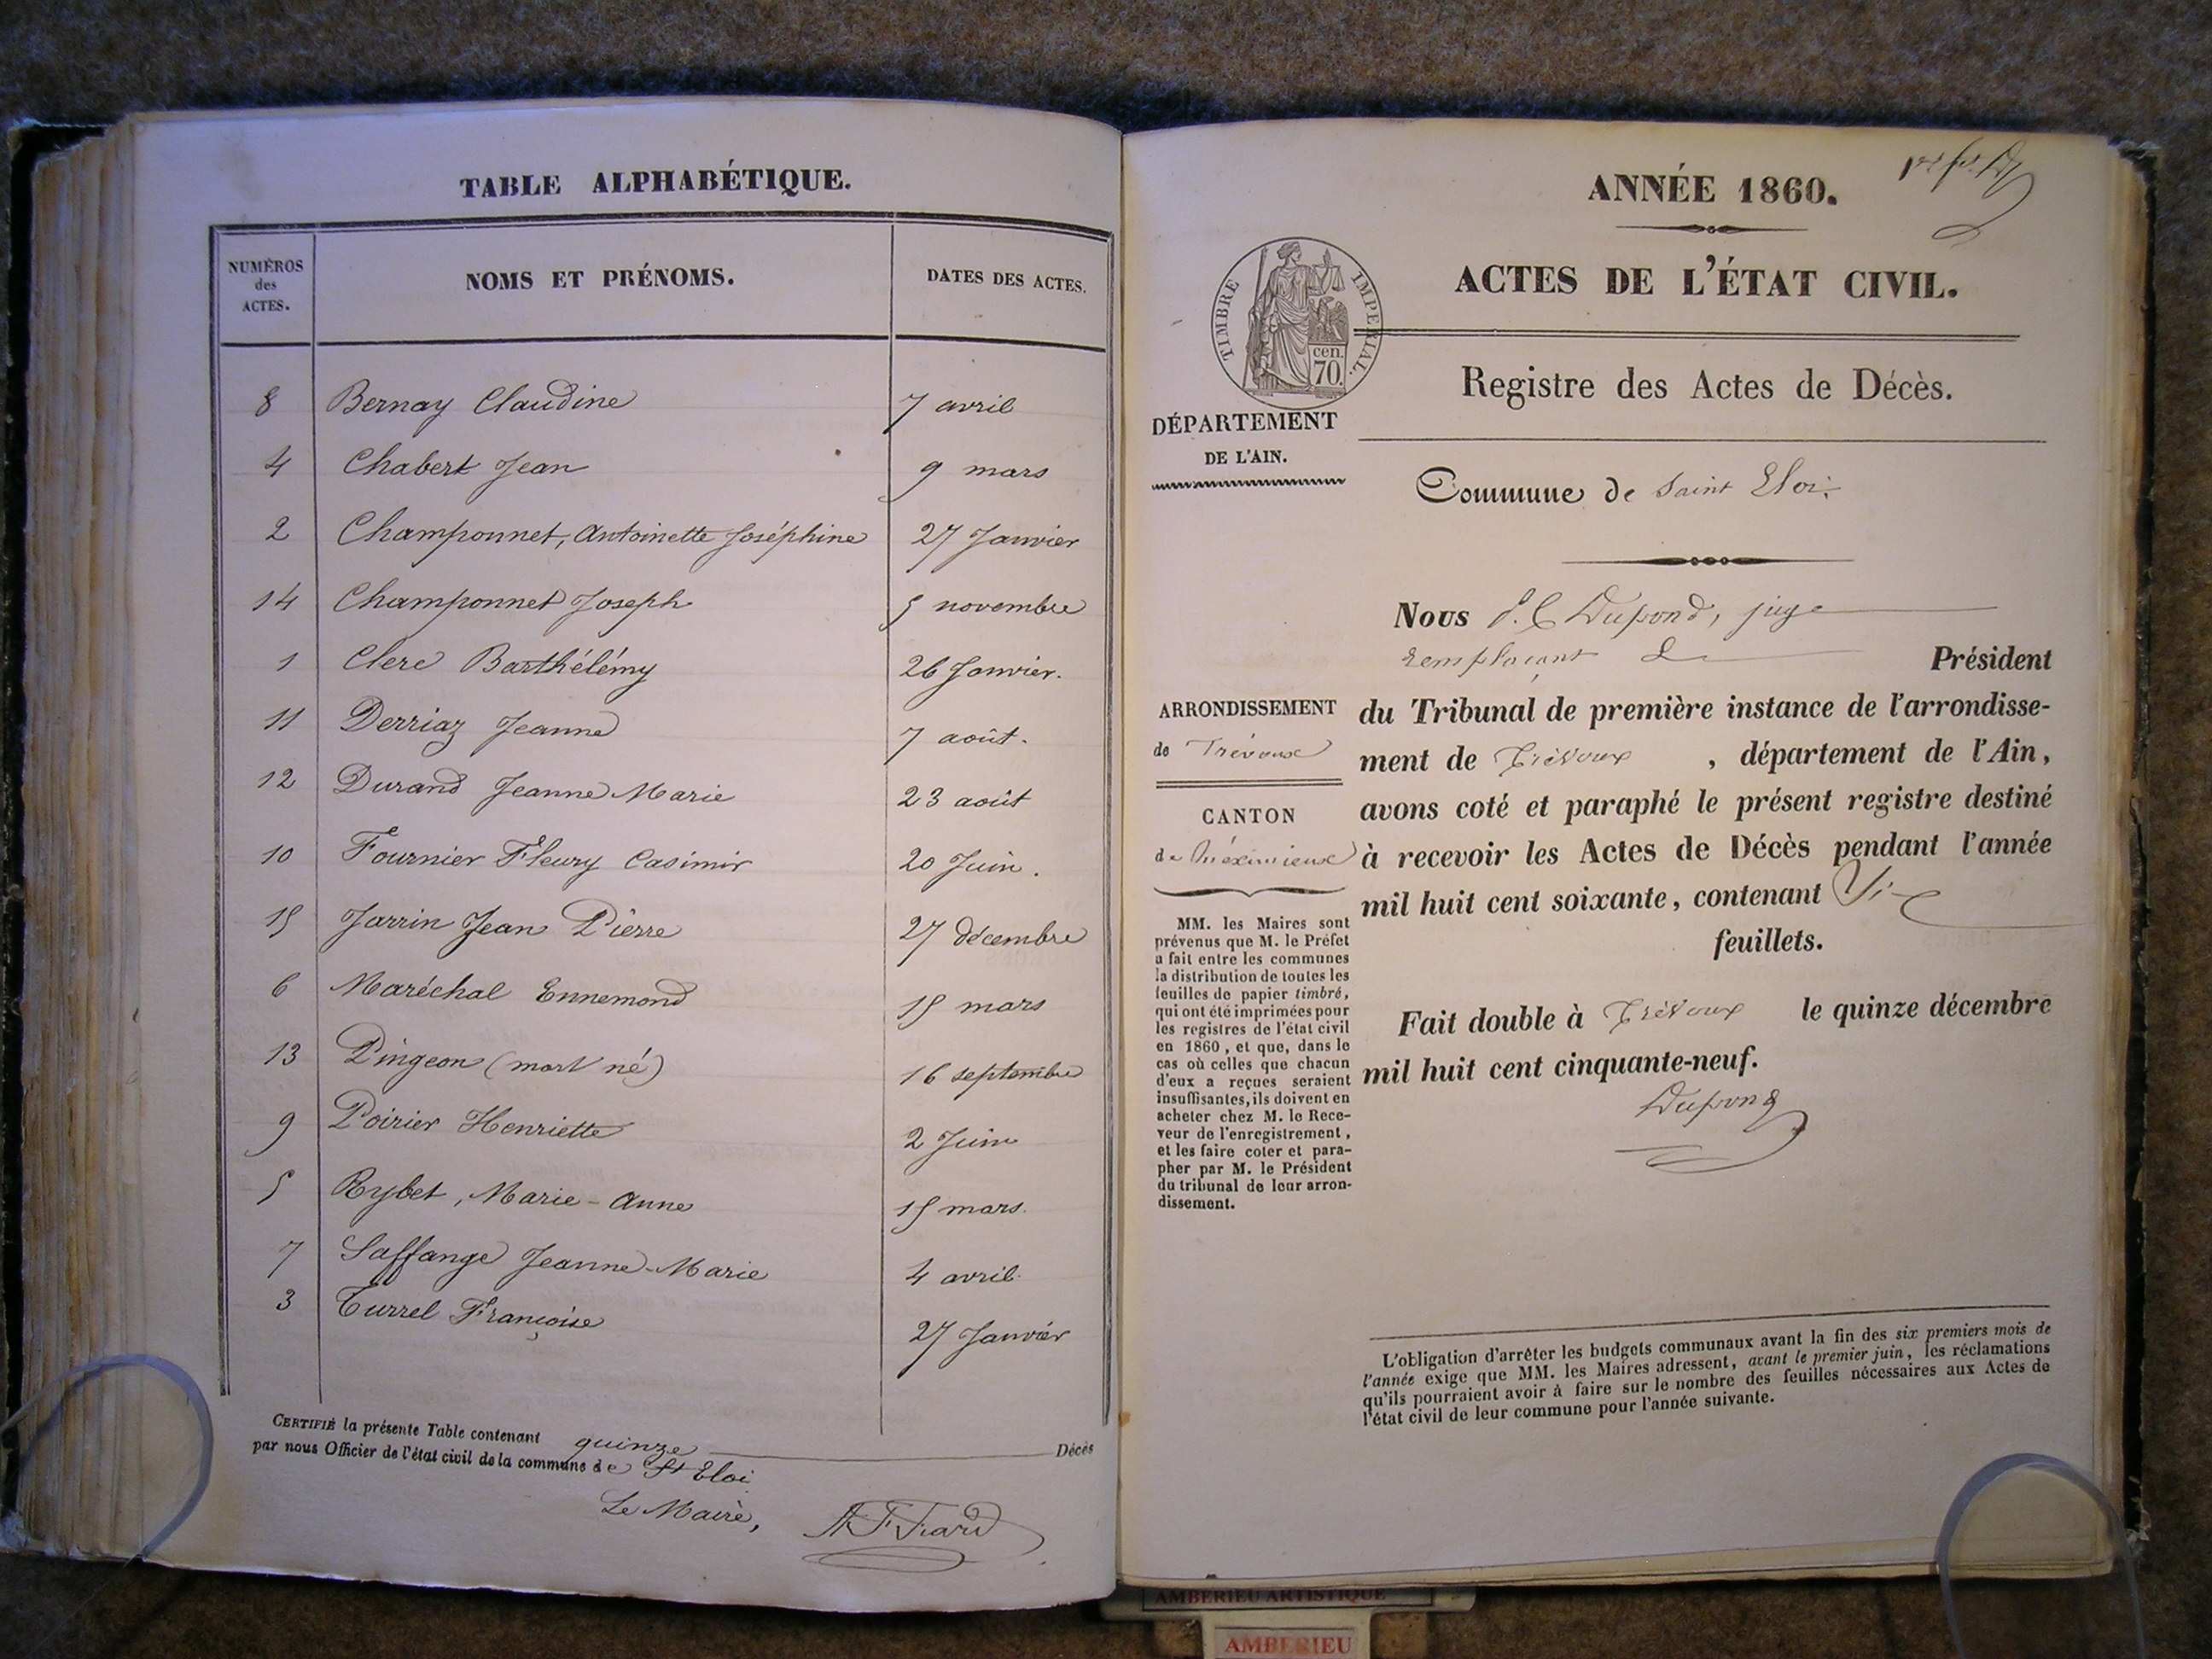 TABLE ALPHABÉTIQUE.
NUMÉROS des ACTES. NOMS ET PRÉNOMS. DATES DES ACTES.
8 Bernay Claudine 7 avril
4 Chabert Jean 9 mars
2 Champonnet, Antoinette Joséphine 27 Janvier
14 Champonnet Joseph 5 novembre
1 Clerc Barthélémy 26 Janvier.
11 Derriaz Jeanne 7 août.
12 Durand Jeanne Marie 23 août
10 Fournier Fleury Casimir 20 Juin.
15 Jarrin Jean Pierre 27 décembre
6 Maréchal Ennemond 15 mars
13 Pingeon (mort né) 16 septembre
9 Poirier Henriette 2 Juin
5 Rybet, Marie-Anne 15 mars.
7 Saffange Jeanne-Marie 4 avril.
3 Turrel Françoise 27 Janvier
CERTIFIÉ la présente Table contenant quinze Décès
par nous Officier de l'état civil de la commune de St Eloi
Le Maire,
ANNÉE 1860.
TIMBRE IMPÉRIAL.
cen.
70.
ACTES DE L'ÉTAT CIVIL.
Registre des Actes de Décès.
DÉPARTEMENT
DE L'AIN.
Commune de Saint Eloi.
Nous Dupond, juge
remplaçant Président
du Tribunal de première instance de l'arrondisse-
ment de Trévoux, département de l'Ain,
avons coté et paraphé le présent registre destiné
à recevoir les Actes de Décès pendant l'année
mil huit cent soixante, contenant
feuillets.
Fait double à Trévoux le quinze décembre
mil huit cent cinquante-neuf.
Dupond
ARRONDISSEMENT
de Trévoux
CANTON
de Méximieux
MM. les Maires sont
prévenus que M. le Préfet
a fait entre les communes
la distribution de toutes les
feuilles de papier timbré,
qui ont été imprimées pour
les registres de l'état civil
en 1860, et que, dans le
cas où celles que chacun
d'eux a reçues seraient
insuffisantes, ils doivent en
acheter chez M. le Rece-
veur de l'enregistrement,
et les faire coter et para-
pher par M. le Président
du tribunal de leur arron-
dissement.
L'obligation d'arrêter les budgets communaux avant la fin des six premiers mois de
l'année exige que MM. les Maires adressent, avant le premier juin, les réclamations
qu'ils pourraient avoir à faire sur le nombre des feuilles nécessaires aux Actes de
l'état civil de leur commune pour l'année suivante.
AMBERIEU ARTISTIQUE
AMBERIEU